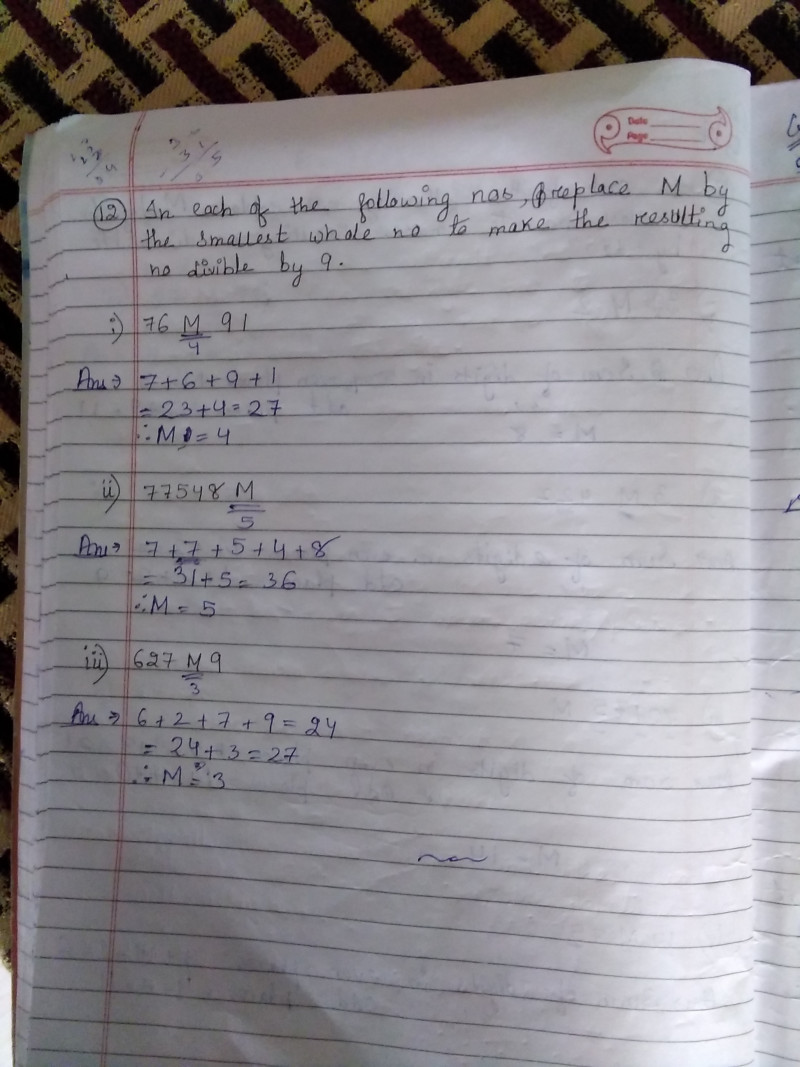 Date
Page
12 In each of the following nos, replace M by
the smallest whole no to make the resulting
no divible by 9.
i) 76 M 91
4
Ans⇒ 7+6+9+1
= 23+4=27
∴M = 4
ii) 77548 M
5
Ans⇒ 7+7+5+4+8
= 31+5= 36
∴M = 5
iii) 627 M 9
3
Ans⇒ 6+2+7+9= 24
= 24+3=27
∴ M = 3